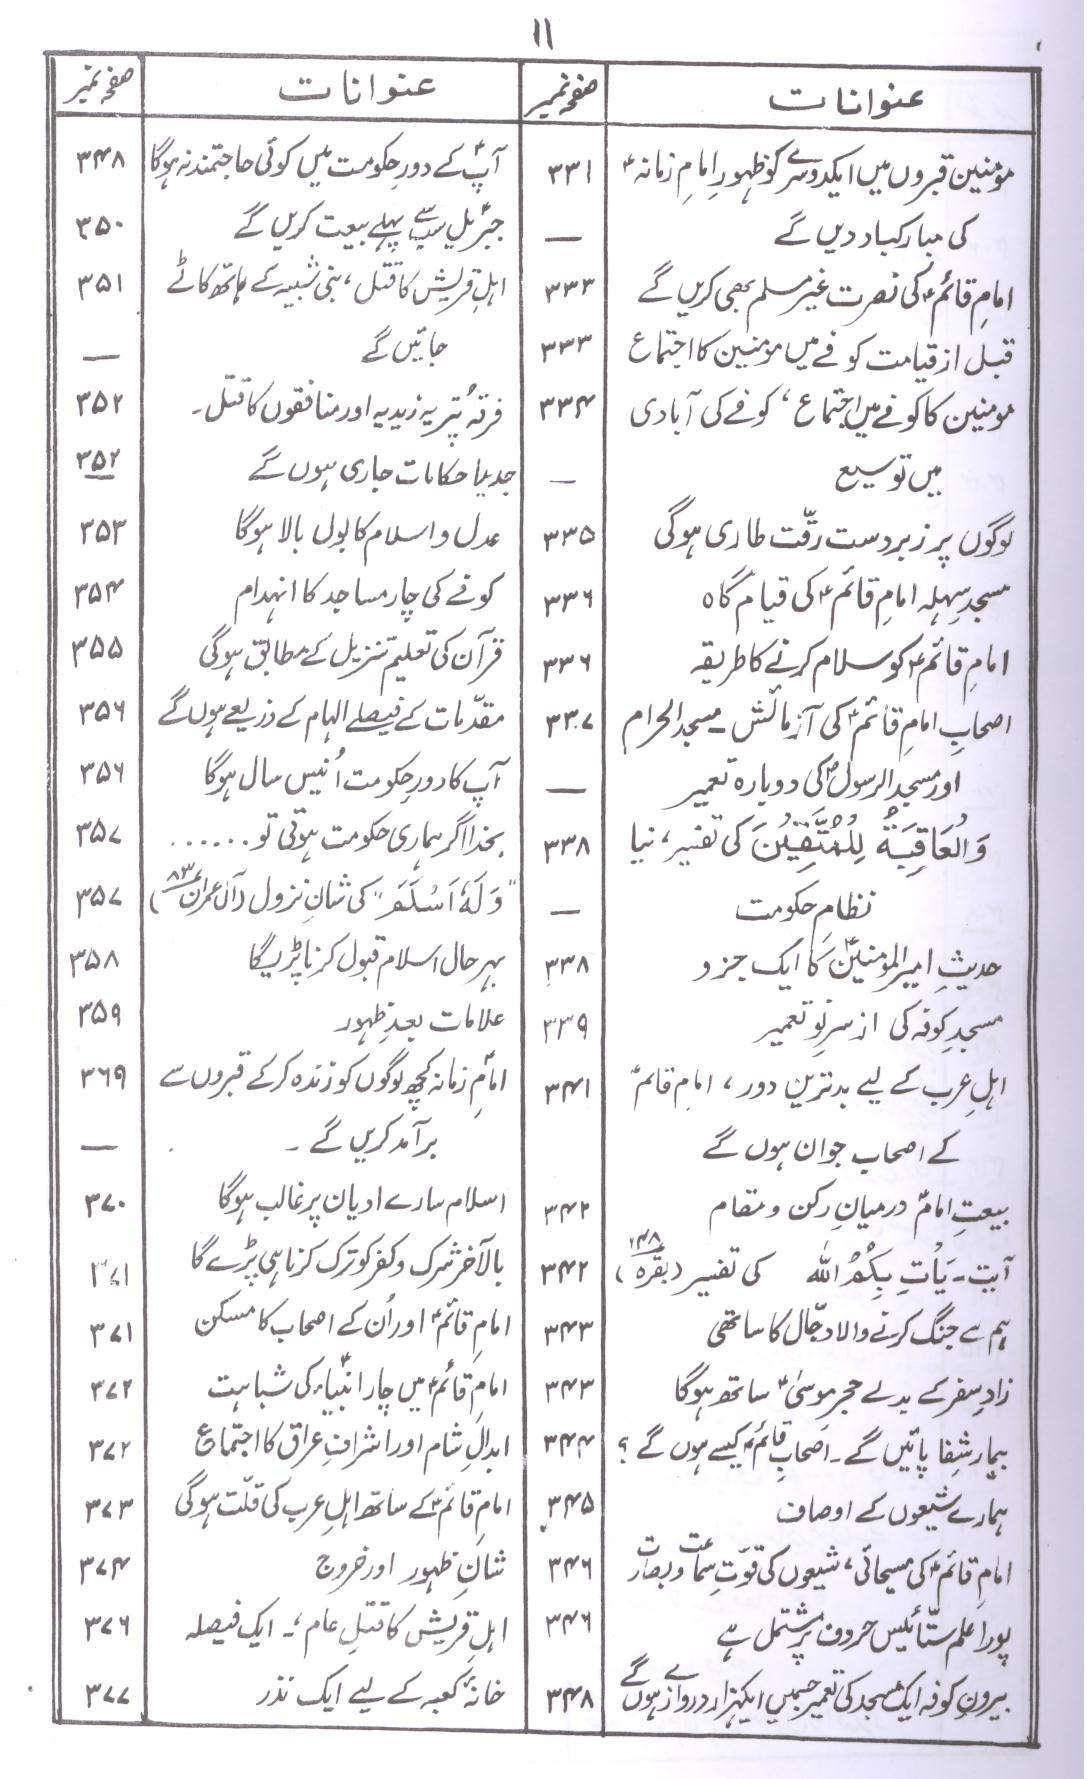 ۱۱
عنوانات صفحہ نمبر
مؤمنین قبروں میں ایکدوسرے کو ظہورِ امامِ زمانہؑ ۳۳۱
کی مبارکباد دیں گے —
امامِ قائمؑ کی نصرت غیر مسلم بھی کریں گے ۳۳۳
قبل از قیامت کوفے میں مومنین کا اجتماع ۳۳۳
مومنین کا کوفے میں اجتماع، کوفے کی آبادی ۳۳۴
میں توسیع —
لوگوں پر زبردست رقّت طاری ہوگی ۳۳۵
مسجدِ سہلہ امامِ قائمؑ کی قیام گاہ ۳۳۶
امامِ قائمؑ کو سلام کرنے کا طریقہ ۳۳۶
اصحابِ امامِ قائمؑ کی آزمائش ۔ مسجد الحرام ۳۳۷
اور مسجد الرسولؐ کی دوبارہ تعمیر —
وَالْعَاقِبَةُ لِلْمُتَّقِيْنَ کی تفسیر، نیا ۳۳۸
نظامِ حکومت —
حدیثِ امیر المومنینؑ کا ایک جزو ۳۳۸
مسجدِ کوفہ کی از سرِ نو تعمیر ۳۳۹
اہلِ عرب کے لیے بدترین دور، امامِ قائمؑ ۳۴۱
کے اصحاب جوان ہوں گے
بیعتِ امامؑ درمیانِ رکن و مقام ۳۴۲
آیت ۔ يَاْتِ بِكُمُ اللّٰه کی تفسیر (بقرہ ۱۴۸) ۳۴۲
ہم سے جنگ کرنے والا دجّال کا ساتھی ۳۴۳
زادِ سفر کے بدلے حجرِ موسیٰؑ ساتھ ہوگا ۳۴۳
بیمار شفا پائیں گے ۔ اصحابِ قائمؑ کیسے ہوں گے ؟ ۳۴۴
ہمارے شیعوں کے اوصاف ۳۴۵
امامِ قائمؑ کی مسیحائی، شیعوں کی قوّتِ سماعت و بصارت ۳۴۶
پورا علم ستّائیس حروف پر مشتمل ہے ۳۴۶
بیرونِ کوفہ ایک مسجد کی تعمیر جسمیں ایکہزار دروازے ہوں گے ۳۴۸
عنوانات صفحہ نمبر
آپؑ کے دورِ حکومت میں کوئی حاجتمند نہ ہوگا ۳۴۸
جبرئیلؑ سب سے پہلے بیعت کریں گے ۳۵۰
اہلِ قریش کا قتل، بنی شیبہ کے ہاتھ کاٹے ۳۵۱
جائیں گے —
فرقۂ بُتریہ زیدیہ اور منافقوں کا قتل ۔ ۳۵۲
جدید احکامات جاری ہوں گے ۳۵۲
عدل و اسلام کا بول بالا ہوگا ۳۵۳
کوفے کی چار مساجد کا انہدام ۳۵۴
قرآن کی تعلیم تنزیل کے مطابق ہوگی ۳۵۵
مقدّمات کے فیصلے الہام کے ذریعے ہوں گے ۳۵۶
آپ کا دورِ حکومت اُنیس سال ہوگا ۳۵۶
بخدا اگر ہماری حکومت ہوتی تو ...... ۳۵۷
"وَلَهٗ اَسْلَمَ" کی شانِ نزول (آل عمران ۸۳) ۳۵۷
بہرحال اسلام قبول کرنا پڑیگا ۳۵۸
علامات بعدِ ظہور ۳۵۹
امامِؑ زمانہ کچھ لوگوں کو زندہ کر کے قبروں سے ۳۶۹
برآمد کریں گے ۔ —
اسلام سارے ادیان پر غالب ہوگا ۳۷۰
بالآخر شرک و کفر کو ترک کرنا ہی پڑے گا ۳۷۱
امامِ قائمؑ اور اُن کے اصحاب کا مسکن ۳۷۱
امامِ قائمؑ میں چار انبیاءؑ کی شباہت ۳۷۲
ابدالِ شام اور اشرافِ عراق کا اجتماع ۳۷۲
امامِ قائمؑ کے ساتھ اہلِ عرب کی قلّت ہوگی ۳۷۳
شانِ ظہور اور خروج ۳۷۴
اہلِ قریش کا قتلِ عام، ۔ ایک فیصلہ ۳۷۶
خانۂ کعبہ کے لیے ایک نذر ۳۷۷